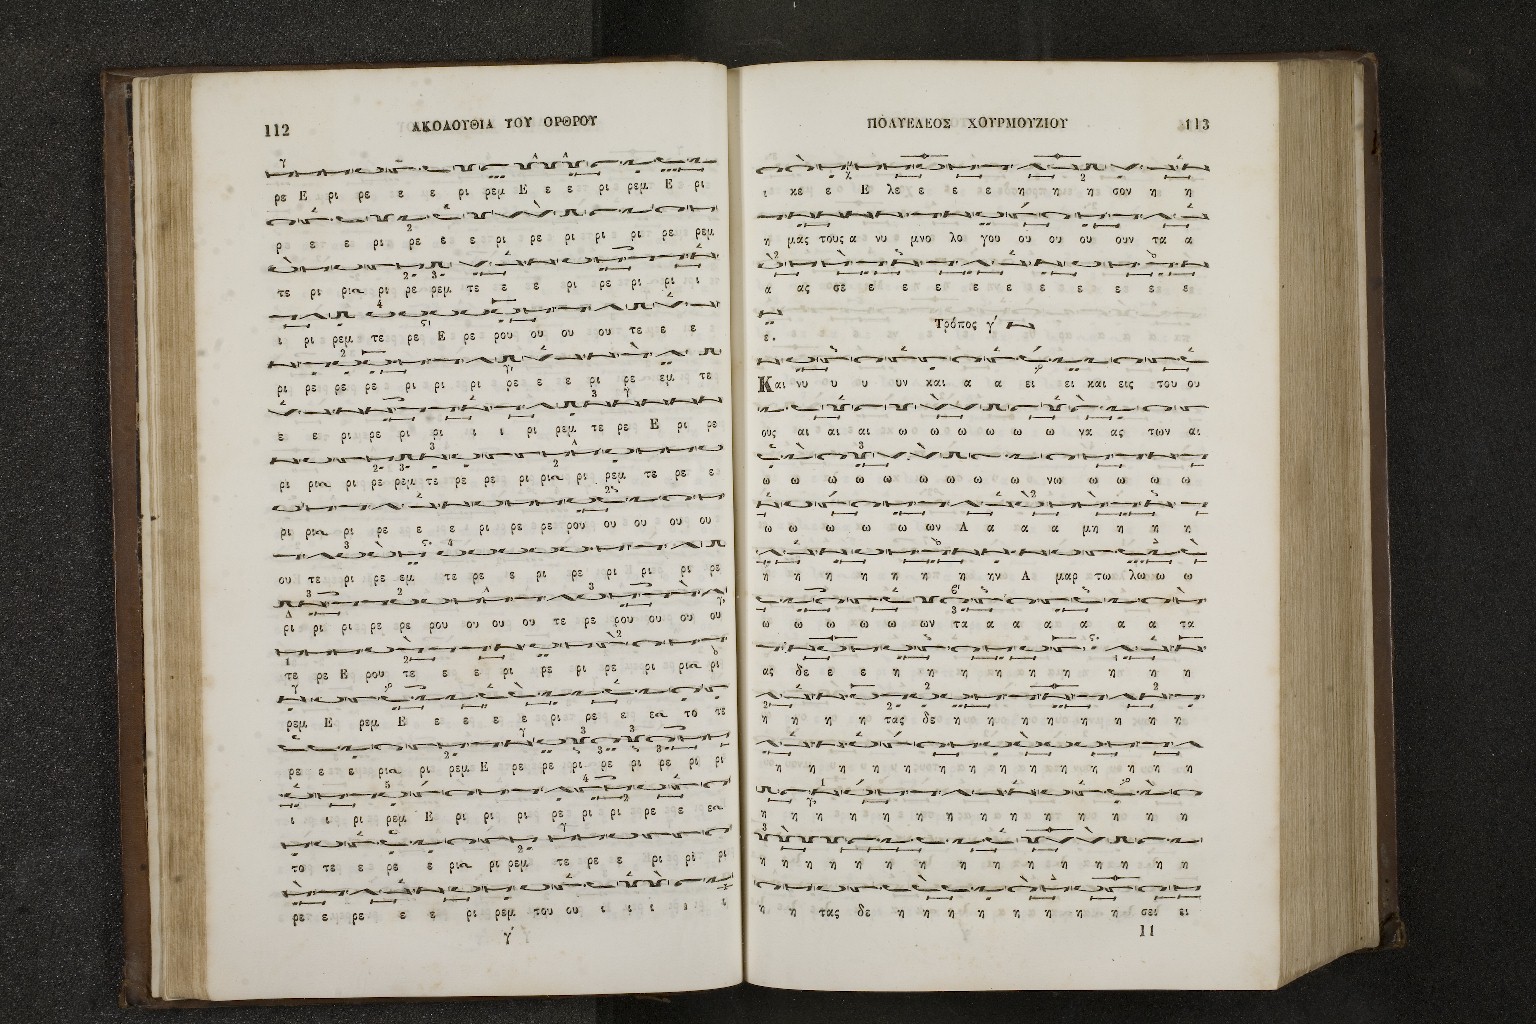 112
ΑΚΟΛΟΥΘΙΑ ΤΟΥ ΟΡΘΡΟΥ
ρε Ε ρι ρε ε ε ρι ρεμ Ε ε ε ρι ρεμ Ε ρι
ρ ε ε ρι ρε ε ε ρι ρε ρι ρι ρι ρε ρεμ
τε ρι ρι ρι ρε ρεμ τε ε ε ρι ρε ρι ρι ι
ι ρι ρεμ τε ρε Ε ρε ρου ου ου ου τε ε ε
ρι ρε ρε ρε ρι ρι ρι ρε ε ε ρι ρε εμ τε
ε ε ρι ρε ρι ρι ι ι ρι ρεμ τε ρε Ε ρι ρε
ρι ρι ρι ρε ρεμ τε ρε ρε ρι ρι ρι ρεμ τε ρε ε
ρι ρι ρι ρε ε ε ρι ρε ρε ρου ου ου ου ου
ου τε ρι ρε εμ τε ρε ε ρι ρε ρι ρι ρι ρε
ρι ρι ρι ρε ρε ρου ου ου ου τε ρε ρου ου ου ου
τε ρε Ε ρου τε ε ε ρι ρε ρι ρε ρι ρι ρι
ρεμ Ε ρεμ Ε ε ε ε ε ρι ρε ε ε το τε
ρε ε ε ρι ρι ρεμ Ε ρε ρε ρι ρε ρι ρε ρι ρι
ι ι ρι ρεμ Ε ρι ρι ρε ρι ρι ρε ε ε
το τε ε ρε ε ρι ρι ρεμ τε ρε ε ρι ρι ρι
ρε ε ρε ε ε ρι ρεμ του ου ι ι ι ι ι
γ'
ΠΟΛΥΕΛΕΟΣ ΧΟΥΡΜΟΥΖΙΟΥ
113
ι κε ε Ε λε ε ε ε η η η σον η η
η μας τους α νυ μνο λο γου ου ου ου ουν τα α
α ας σε ε ε ε ε ε ε ε ε ε ε ε
ε.
Τρόπος γ'
Και νυ υ υ υν και α α ει ει και εις του ου
ους αι αι αι ω ω ω ω ω ω να ας των αι
ω ω ω ω ω ω ω ω νω ω ω ω ω
ω ω ω ω ω ων Α α α α μη η η η
η η η η η η η ην Α μαρ τω λω ω ω
ω ω ω ω ω ων τα α α α α α α τα
ας δε ε ε η η η η η η η η
η η η η τας δε η η η η η η η η
η η η η η η η η η η η η η η
η η η η η η η η η η η η η η
η η η η η η η η η η η η η η
η η τας δε η η η η η η η η σει ει
11